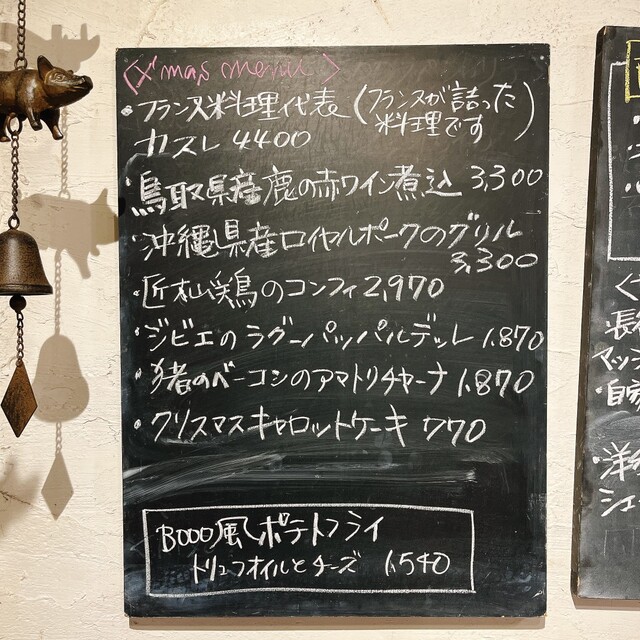 <X'mas menu>
・フランス料理代表(フランスが詰った
料理です)
カスレ 4400
・鳥取県産鹿の赤ワイン煮込 3,300
・沖縄県産ロイヤルポークのグリル
3,300
・匠の鶏のコンフィ 2,970
・ジビエのラグーパッパルデッレ 1,870
・猪のベーコンのアマトリチャーナ 1,870
・クリスマスキャロットケーキ 770
BOOO風ポテトフライ
トリュフオイルとチーズ 1,540
マッ
・自家
シェ